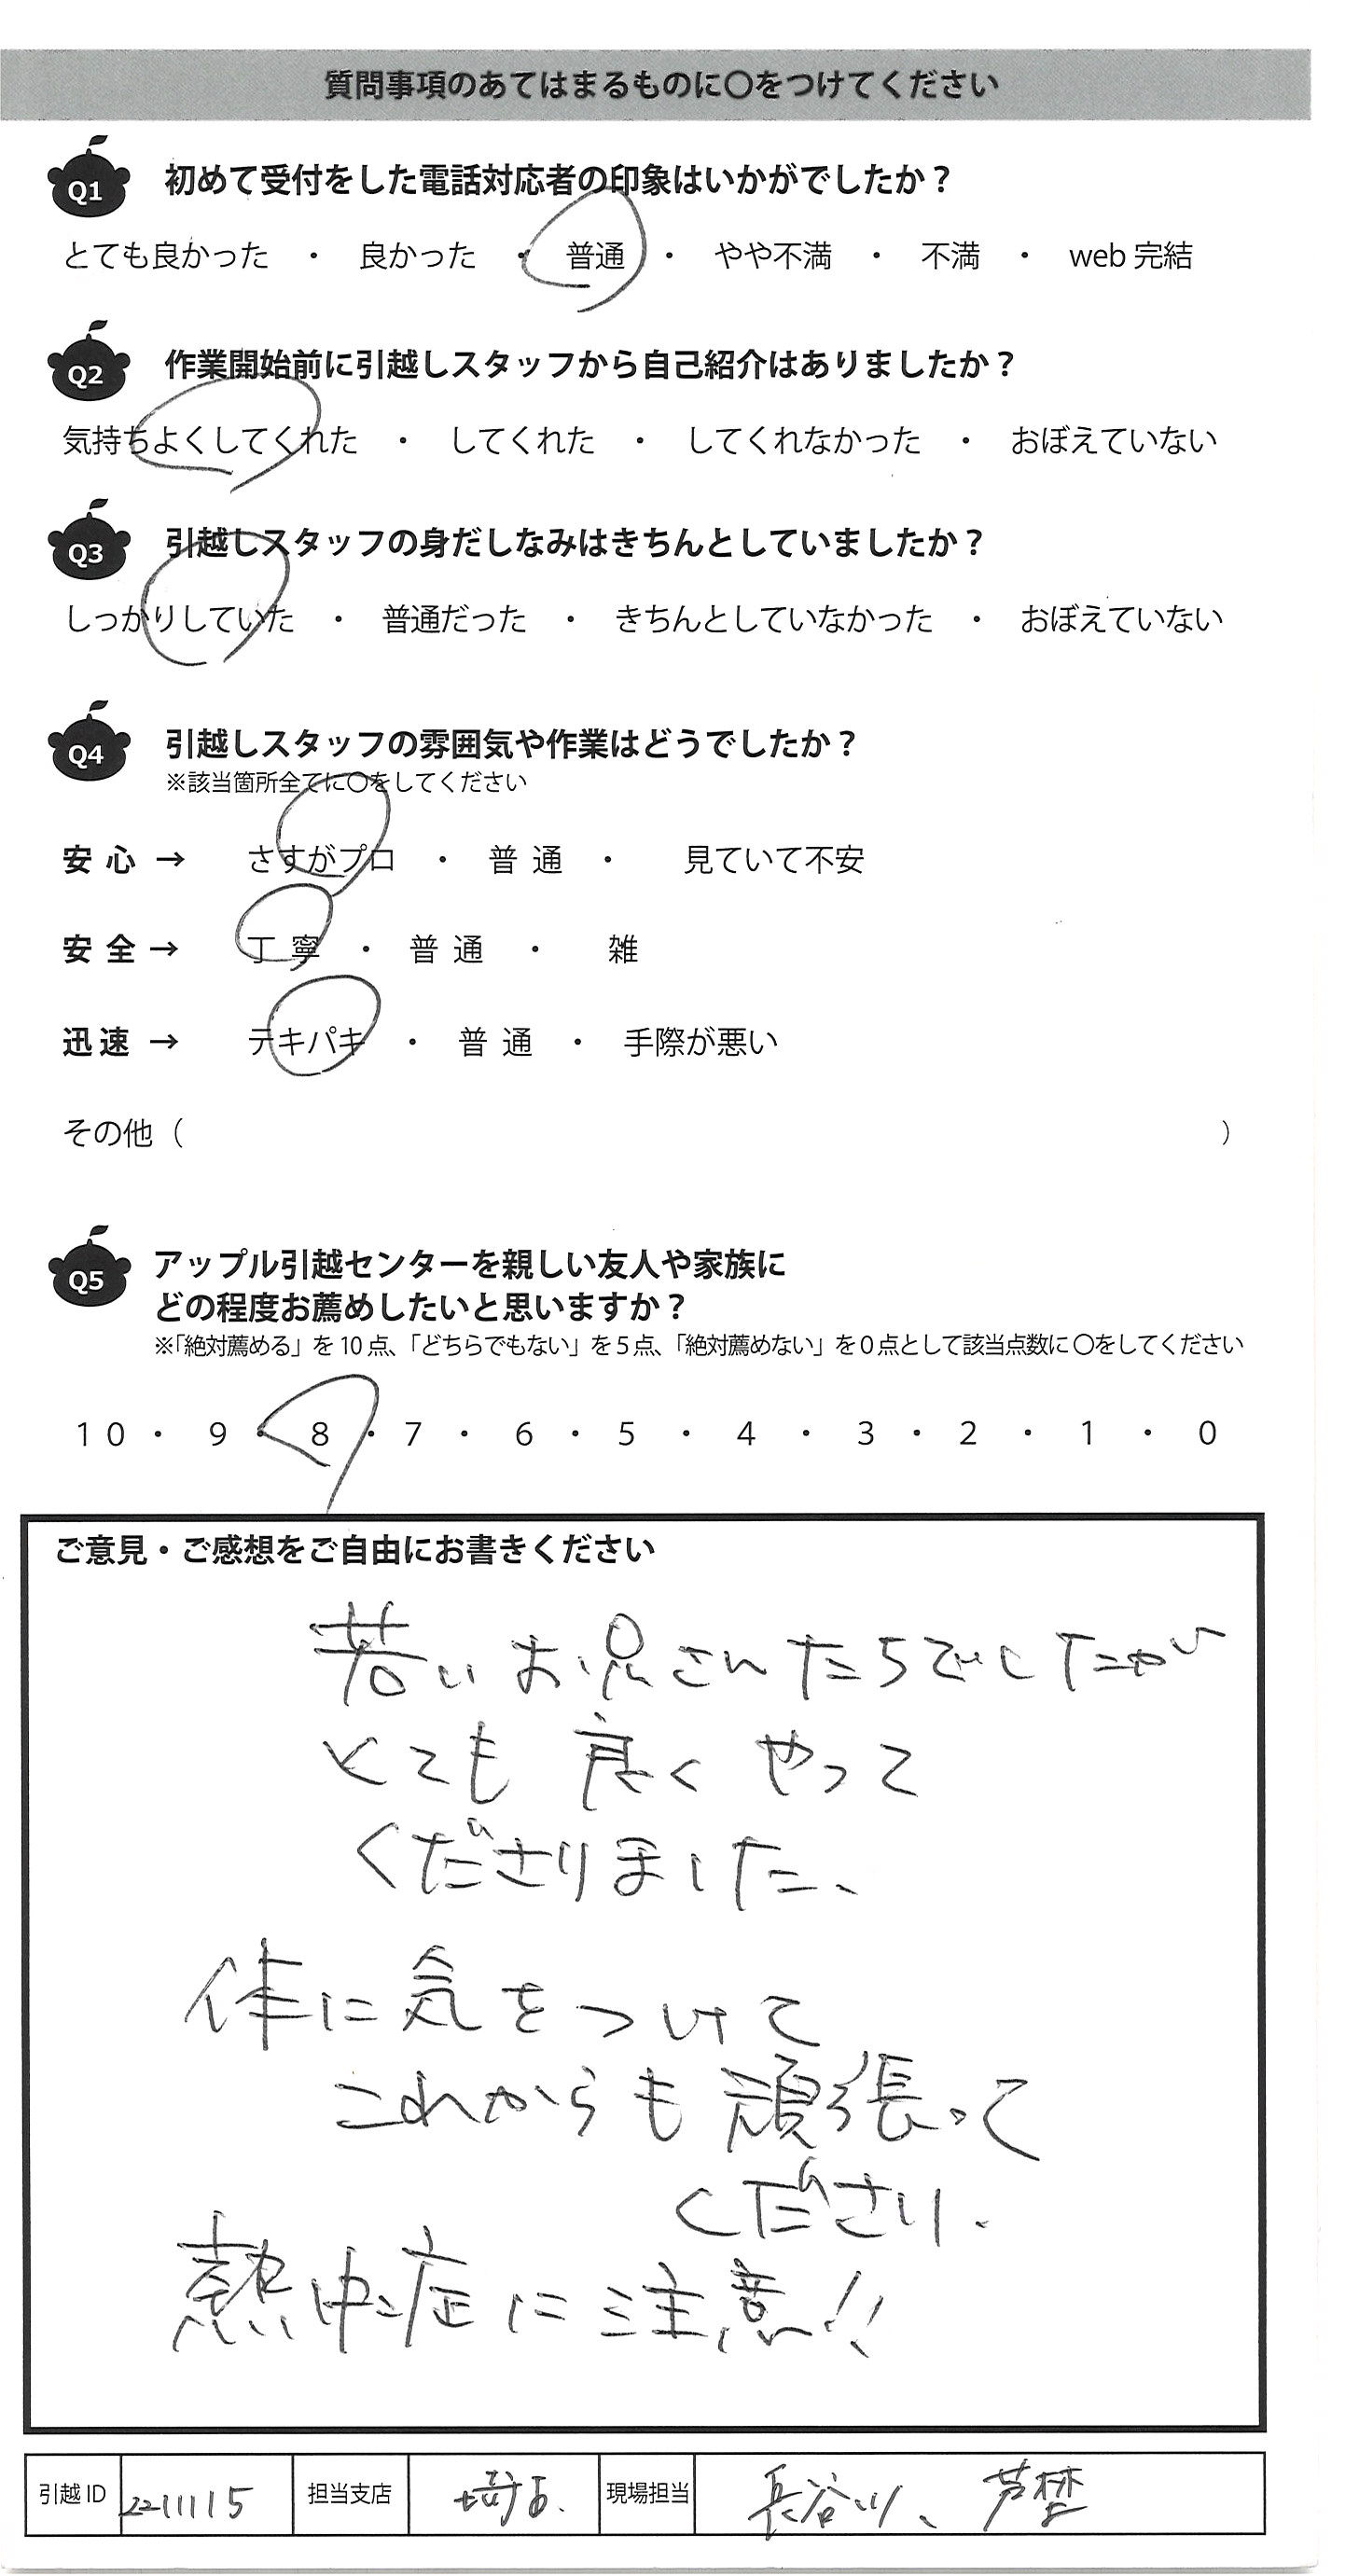 質問事項のあてはまるものに〇をつけてください
Q1 初めて受付をした電話対応者の印象はいかがでしたか？
とても良かった ・ 良かった ・ 普通 ・ やや不満 ・ 不満 ・ web 完結
Q2 作業開始前に引越しスタッフから自己紹介はありましたか？
気持ちよくしてくれた ・ してくれた ・ してくれなかった ・ おぼえていない
Q3 引越しスタッフの身だしなみはきちんとしていましたか？
しっかりしていた ・ 普通だった ・ きちんとしていなかった ・ おぼえていない
Q4 引越しスタッフの雰囲気や作業はどうでしたか？
※該当箇所全てに〇をしてください
安心 → さすがプロ ・ 普通 ・ 見ていて不安
安全 → 丁寧 ・ 普通 ・ 雑
迅速 → テキパキ ・ 普通 ・ 手際が悪い
その他（ ）
Q5 アップル引越センターを親しい友人や家族に
どの程度お薦めしたいと思いますか？
※「絶対薦める」を 10 点、「どちらでもない」を 5 点、「絶対薦めない」を 0 点として該当点数に 〇をしてください
10 ・ 9 ・ 8 ・ 7 ・ 6 ・ 5 ・ 4 ・ 3 ・ 2 ・ 1 ・ 0
ご意見・ご感想をご自由にお書きください
若いお兄さんたちでしたが
とても良くやって
くださりました、
体に気をつけて
これからも頑張って
ください.
熱中症に注意!!
引越 ID 2211115 担当支店 現場担当 長谷川、